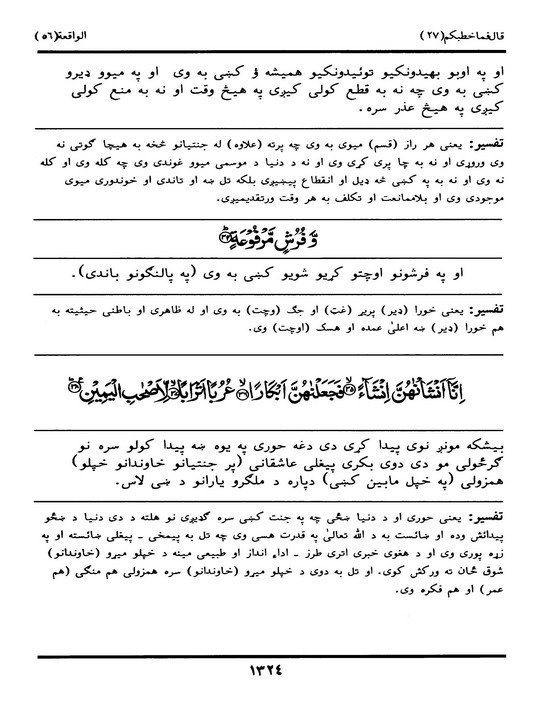 قال فما خطبكم(٢٧) الواقعة(٥٦)
او په اوبو بهيدونكيو توئيدونكيو هميشه ؤ كښى به وى او په ميوو ډيرو
كښى به وى چه نه به قطع كولى كيږى په هيڅ وقت او نه به منع كولى
كيږى په هيڅ عذر سره.
تفسير: يعنى هر راز (قسم) ميوى به وى چه پرته (علاوه) له جنتيانو څخه به هيچا گوتى نه
وى وروړى او نه به چا پرى كړى وى او نه د دنيا د موسمى ميوو غوندى وى چه كله وى او كله
نه وى او نه به په كښى څه ډيل او انقطاع پيښيږى بلكه تل ښه او تاندى او خوندورى ميوى
موجودى وى او بلاممانعت او تكلف به هر وقت ورتقديميږى.
وَّ فُرُشٍ مَّرْفُوْعَةٍ ﴿٣٤﴾
او په فرشونو اوچتو كړيو شويو كښى به وى (په پالنگونو باندى).
تفسير: يعنى خورا (ډير) پريړ (غټ) او جگ (وچت) به وى او له ظاهرى او باطنى حيثيته به
هم خورا (ډير) ښه اعلىٰ عمده او هسك (اوچت) وى.
اِنَّآ اَنْشَاْنٰهُنَّ اِنْشَآءً ﴿٣٥﴾ فَجَعَلْنٰهُنَّ اَبْكَارًا ﴿٣٦﴾ عُرُبًا اَتْرَابًا ﴿٣٧﴾ لِّاَصْحٰبِ الْيَمِيْنِ ﴿٣٨﴾
بيشكه مونږ نوى پيدا كړى دى دغه حورى په يوه ښه پيدا كولو سره نو
گرځولى مو دى دوى بكرى پيغلى عاشقانى (پر جنتيانو خاوندانو خپلو)
همزولى (په خپل مابين كښى) دپاره د ملگرو يارانو د ښى لاس.
تفسير: يعنى حورى او د دنيا ښځى چه په جنت كښى سره گډيږى نو هلته د دى دنيا د ښځو
پيدائش وده او ښائست به د الله تعالىٰ په قدرت هسى وى چه تل به پيمخى ـ پيغلى ښائسته او په
زړه پورى وى او د هغوى خبرى اترى طرز ـ اداء انداز او طبيعى مينه د خپلو ميړو (خاوندانو)
شوق ځان ته وركش كوى. او تل به دوى د خپلو ميړو (خاوندانو) سره همزولى هم منگى (هم
عمر) او هم فكره وى.
١٣٢٤